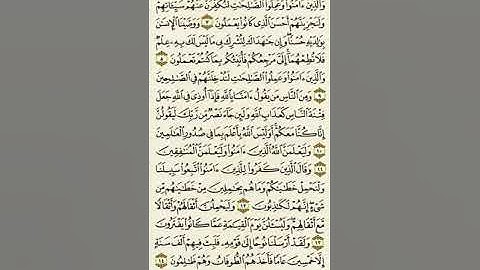 وَٱلَّذِينَ ءَامَنُوا۟ وَعَمِلُوا۟ ٱلصَّٰلِحَٰتِ لَنُكَفِّرَنَّ عَنْهُمْ سَيِّـَٔاتِهِمْ
وَلَنَجْزِيَنَّهُمْ أَحْسَنَ ٱلَّذِى كَانُوا۟ يَعْمَلُونَ ٧ وَوَصَّيْنَا ٱلْإِنسَٰنَ
بِوَٰلِدَيْهِ حُسْنًا وَإِن جَٰهَدَاكَ لِتُشْرِكَ بِى مَا لَيْسَ لَكَ بِهِۦ عِلْمٌ
فَلَا تُطِعْهُمَآ إِلَىَّ مَرْجِعُكُمْ فَأُنَبِّئُكُم بِمَا كُنتُمْ تَعْمَلُونَ ٨
وَٱلَّذِينَ ءَامَنُوا۟ وَعَمِلُوا۟ ٱلصَّٰلِحَٰتِ لَنُدْخِلَنَّهُمْ فِى ٱلصَّٰلِحِينَ
٩ وَمِنَ ٱلنَّاسِ مَن يَقُولُ ءَامَنَّا بِٱللَّهِ فَإِذَآ أُوذِىَ فِى ٱللَّهِ جَعَلَ
فِتْنَةَ ٱلنَّاسِ كَعَذَابِ ٱللَّهِ وَلَئِن جَآءَ نَصْرٌ مِّن رَّبِّكَ لَيَقُولُنَّ
إِنَّا كُنَّا مَعَكُمْ أَوَلَيْسَ ٱللَّهُ بِأَعْلَمَ بِمَا فِى صُدُورِ ٱلْعَٰلَمِينَ
١٠ وَلَيَعْلَمَنَّ ٱللَّهُ ٱلَّذِينَ ءَامَنُوا۟ وَلَيَعْلَمَنَّ ٱلْمُنَٰفِقِينَ
١١ وَقَالَ ٱلَّذِينَ كَفَرُوا۟ لِلَّذِينَ ءَامَنُوا۟ ٱتَّبِعُوا۟ سَبِيلَنَا
وَلْنَحْمِلْ خَطَٰيَٰكُمْ وَمَا هُم بِحَٰمِلِينَ مِنْ خَطَٰيَٰهُم مِّن
شَىْءٍ إِنَّهُمْ لَكَٰذِبُونَ ١٢ وَلَيَحْمِلُنَّ أَثْقَالَهُمْ وَأَثْقَالًا
مَّعَ أَثْقَالِهِمْ وَلَيُسْـَٔلُنَّ يَوْمَ ٱلْقِيَٰمَةِ عَمَّا كَانُوا۟ يَفْتَرُونَ
١٣ وَلَقَدْ أَرْسَلْنَا نُوحًا إِلَىٰ قَوْمِهِۦ فَلَبِثَ فِيهِمْ أَلْفَ سَنَةٍ
إِلَّا خَمْسِينَ عَامًا فَأَخَذَهُمُ ٱلطُّوفَانُ وَهُمْ ظَٰلِمُونَ ١٤